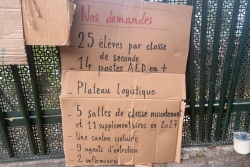 Nos demandes
25 élèves par classe
de seconde
_ 14 postes AED en +
_ Plateau logistique
_ 5 salles de classe maintenant
et 11 supplémentaires en 2027
_ Une cantine scolaire
_ 9 agents d'entretien
_ 2 infirmières